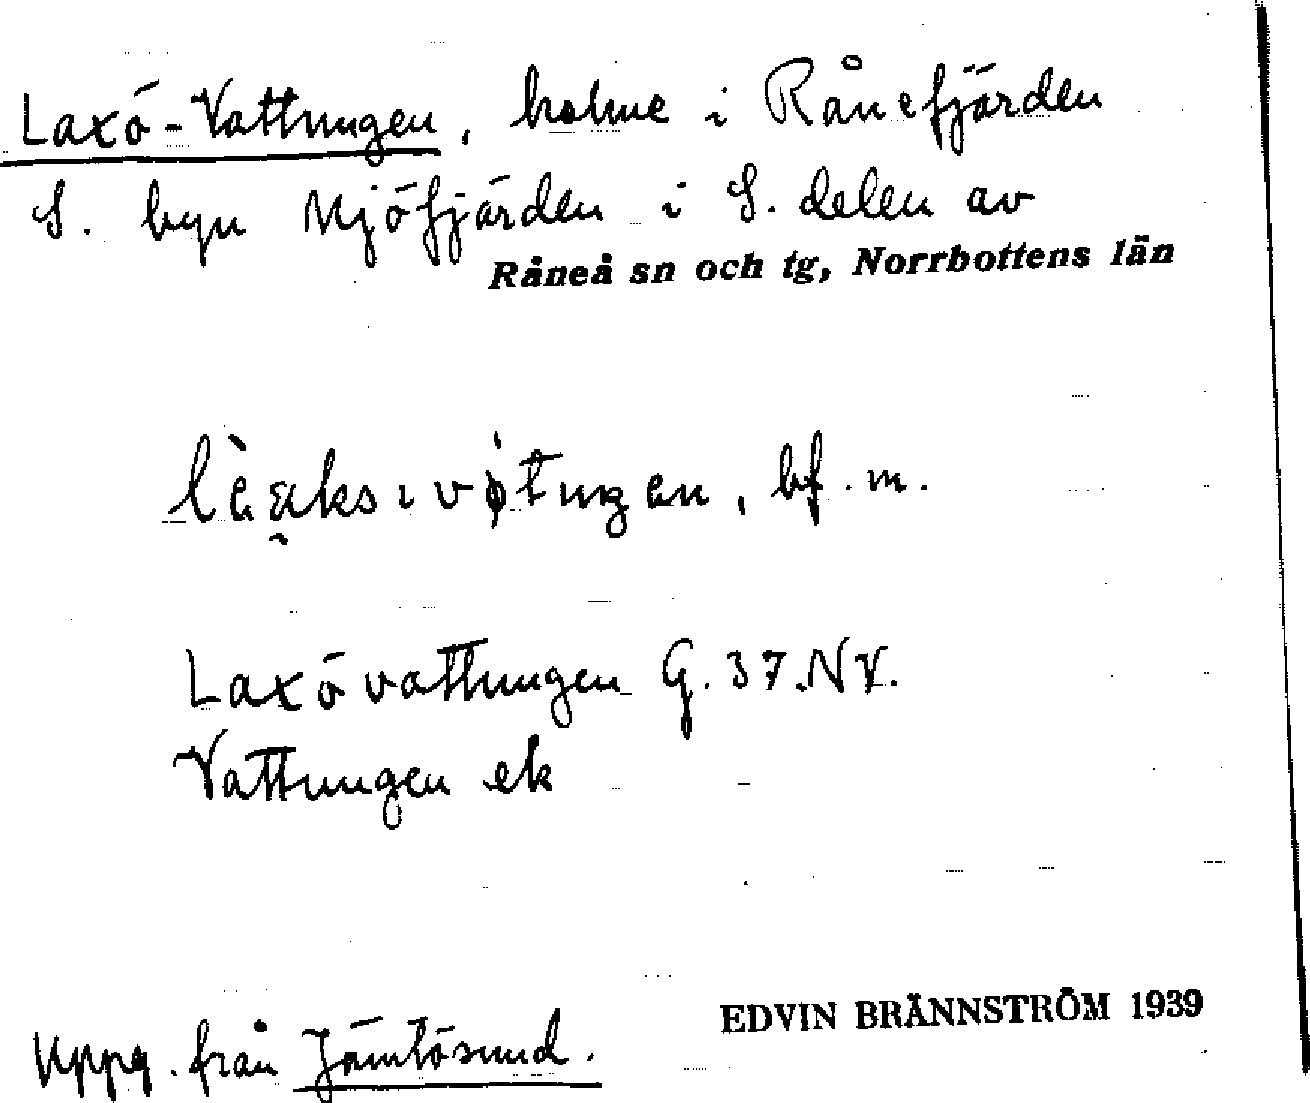 Laxö-Vattungen, holme i Rånefjärden
S. byn Mjöfjärden i S. delen av
Råneå sn och tg, Norrbottens län
bf. m.
Laxövattungen G. 37. NV.
Vattungen ek
EDVIN BRÄNNSTRÖM 1939
Uppg. från Jämtösund.